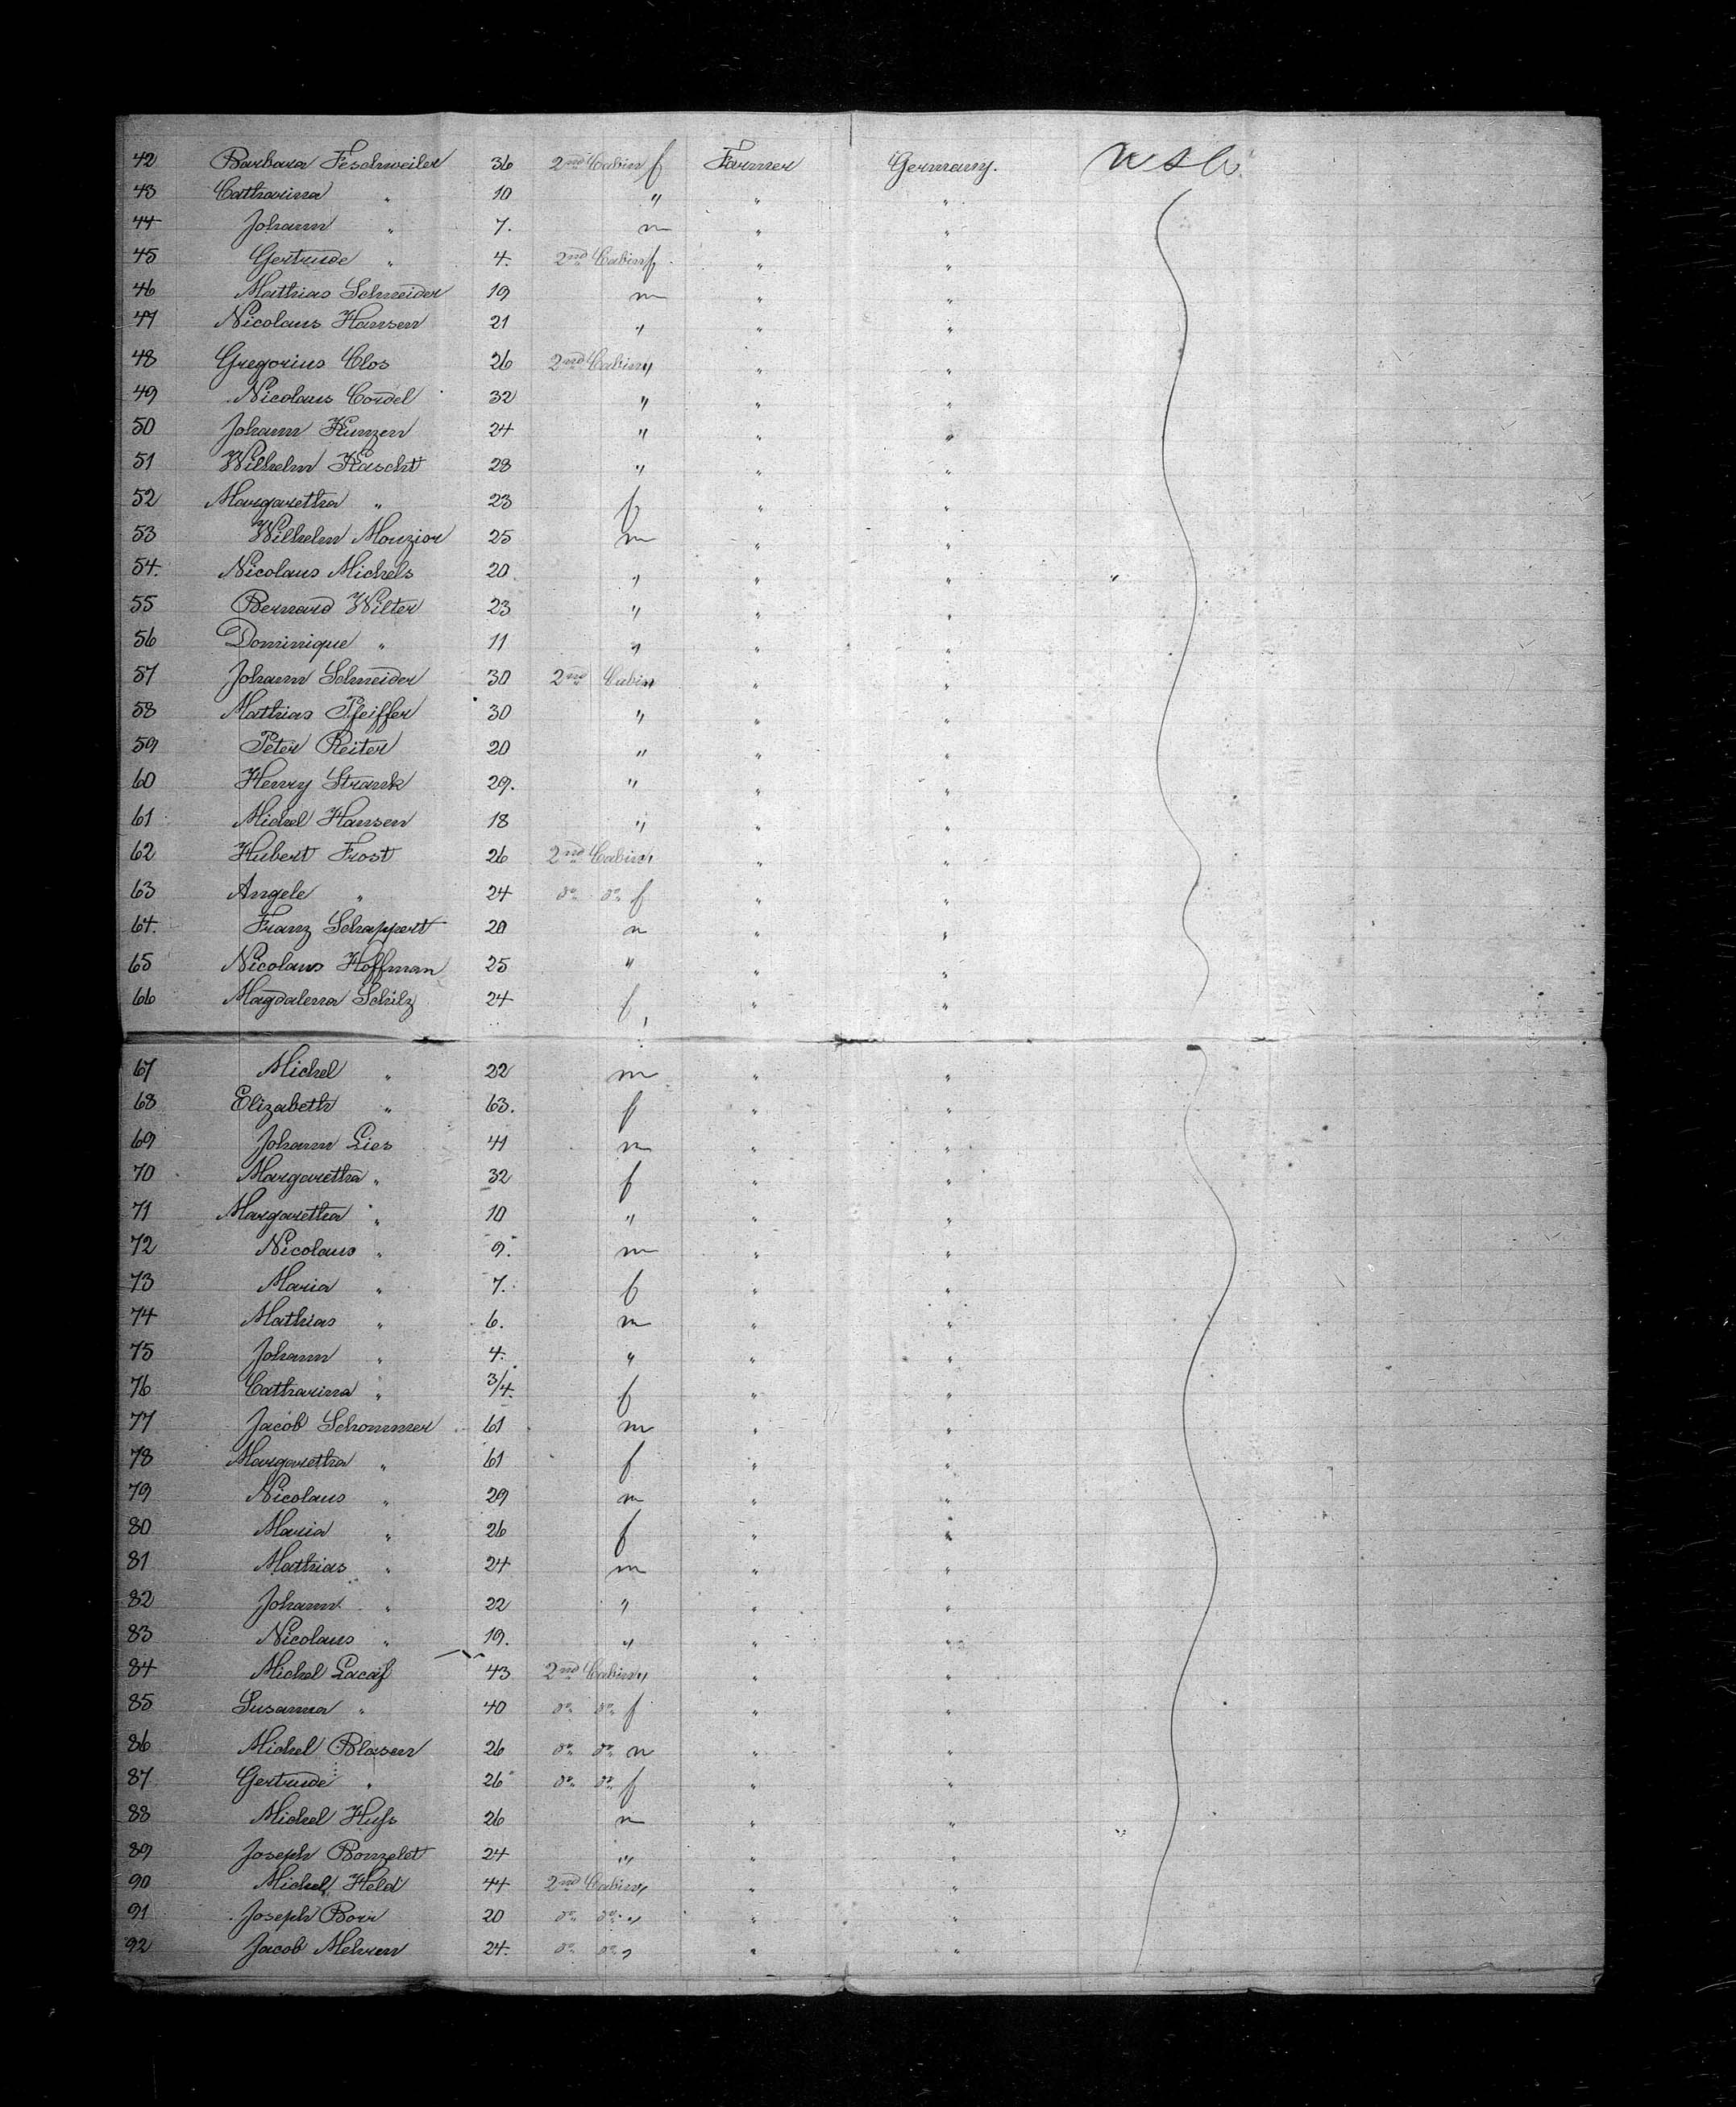 42 Barbara Feschweiler 36 2nd Cabin f Farmer Germany. USA
43 Catharina " 10 " " "
44 Johann " 7. m " "
45 Gertrude " 4. 2nd Cabin f " "
46 Mathias Schneider 19 m " "
47 Nicolaus Hansen 21 " " "
48 Gregorius Clos 26 2nd Cabin " " "
49 Nicolaus Cordel 32 " " "
50 Johann Kunzen 24 " " "
51 Wilhelm Kascht 28 " " "
52 Margaretha " 23 f " "
53 Wilhelm Mouzior 25 m " "
54. Nicolaus Michels 20 " " " "
55 Bernard Wilter 23 " " "
56 Dominique " 11 " " "
57 Johann Schneider 30 2nd Cabin " " "
58 Mathias Pfeiffer 30 " " "
59 Peter Reiter 20 " " "
60 Henry Strank 29. " " "
61 Michel Hansen 18 " " "
62 Hubert Frost 26 2nd Cabin " " "
63 Angele " 24 do do f " "
64. Franz Schappert 20 m " "
65 Nicolaus Hoffman 25 " " "
66 Magdalena Schilz 24 f " "
67 Michel " 22 m " "
68 Elizabeth " 63. f " "
69 Johann Lies 41 m " "
70 Margaretha " 32 f " "
71 Margaretha " 10 " " "
72 Nicolaus " 9. m " "
73 Maria " 7. f " "
74 Mathias " 6. m " "
75 Johann " 4. " " "
76 Catharina " 3/4. f " "
77 Jacob Schommer 61 m " "
78 Margaretha " 61 f " "
79 Nicolaus " 29 m " "
80 Maria " 26 f " "
81 Mathias " 24 m " "
82 Johann " 22 " " "
83 Nicolaus " 19. " " "
84 Michel Lacaf 43 2nd Cabin " " "
85 Susanna " 40 do do f " "
86 Michel Blasen 26 do do m " "
87 Gertrude " 26 do do f " "
88 Michel Huss 26 m " "
89 Joseph Bonzelet 24 " " "
90 Michel Held 44 2nd Cabin " " "
91 Joseph Borr 20 do do " " "
92 Jacob Mehren 24. do do " " "